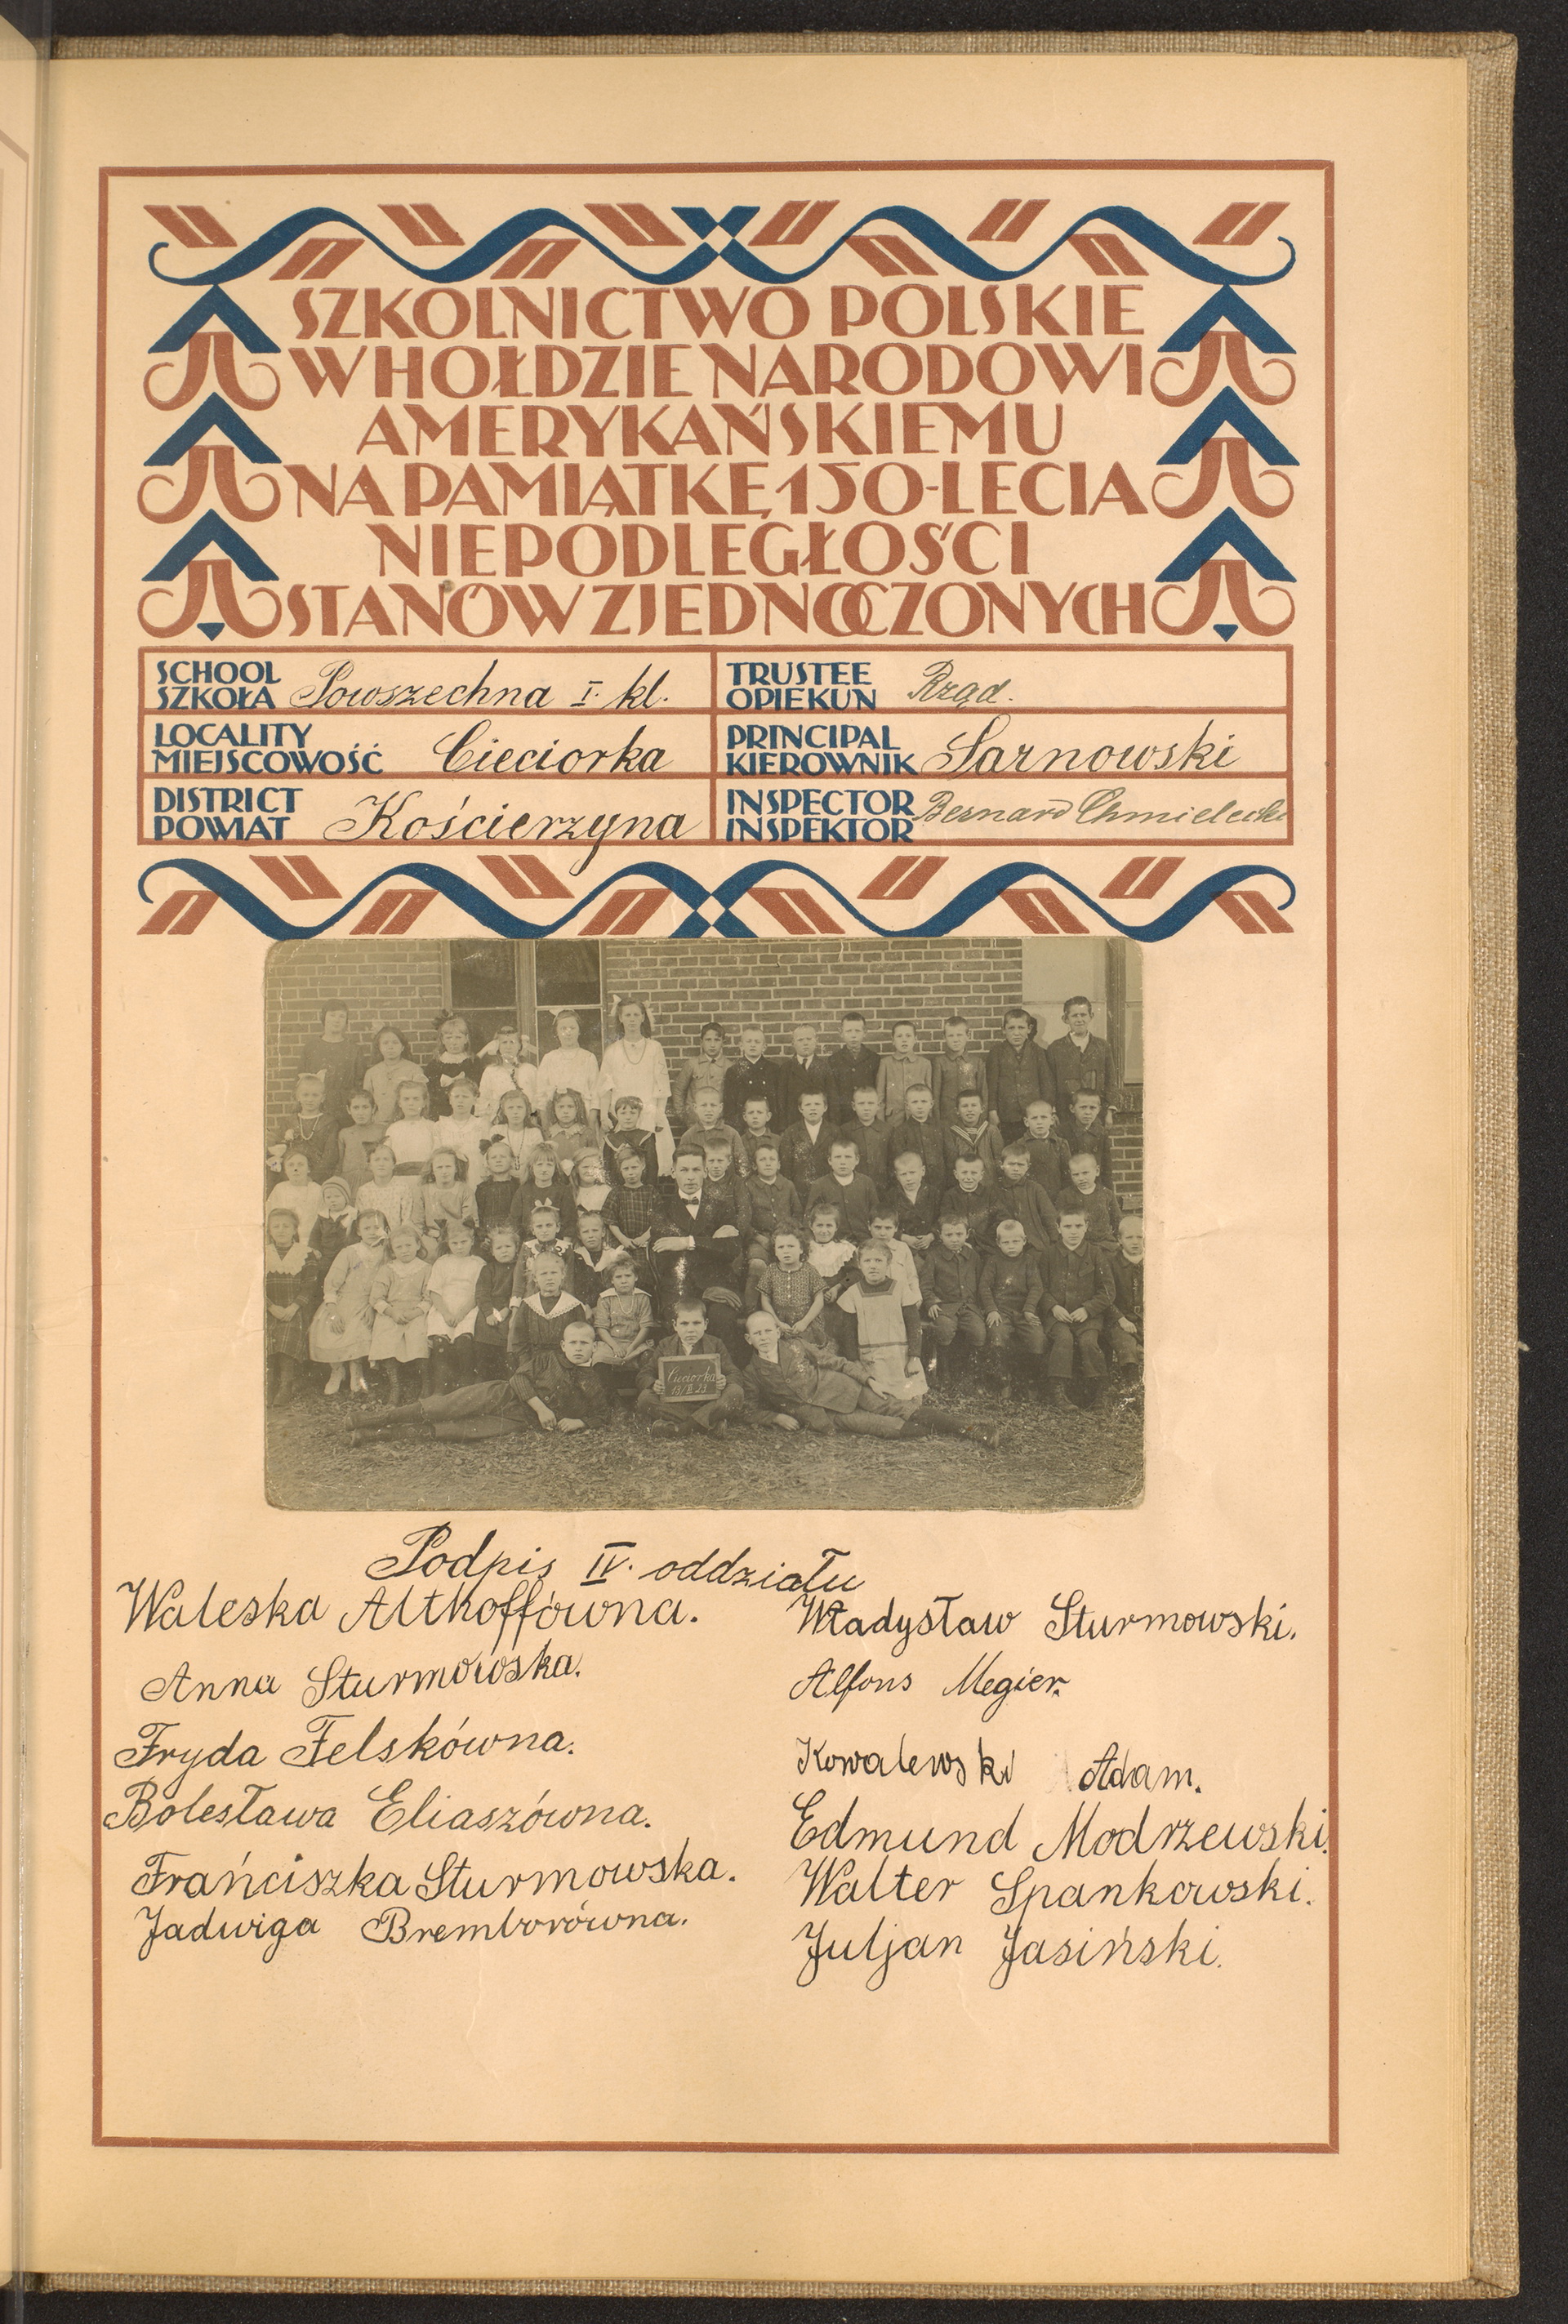 SZKOLNICTWO POLSKIE
W HOŁDZIE NARODOWI
AMERYKAŃSKIEMU
NA PAMIĄTKĘ 150-LECIA
NIEPODLEGŁOŚCI
STANÓW ZJEDNOCZONYCH
SCHOOL
SZKOŁA Powszechna I. kl.
TRUSTEE
OPIEKUN Rząd.
LOCALITY
MIEJSCOWOŚĆ Cieciorka
PRINCIPAL
KIEROWNIK Sarnowski
DISTRICT
POWIAT Kościerzyna
INSPECTOR
INSPEKTOR Bernard Chmielecki
Cieciorka
Podpis IV. oddziału
Waleska Altkoffówna.
Anna Sturmowska.
Fryda Felskówna.
Bolesława Eliaszówna.
Frańciszka Sturmowska.
Jadwiga Bremborówna.
Władysław Sturmowski.
Alfons Megier.
Kowalewski Adam.
Edmund Modrzewski.
Walter Spankowski.
Juljan Jasiński.